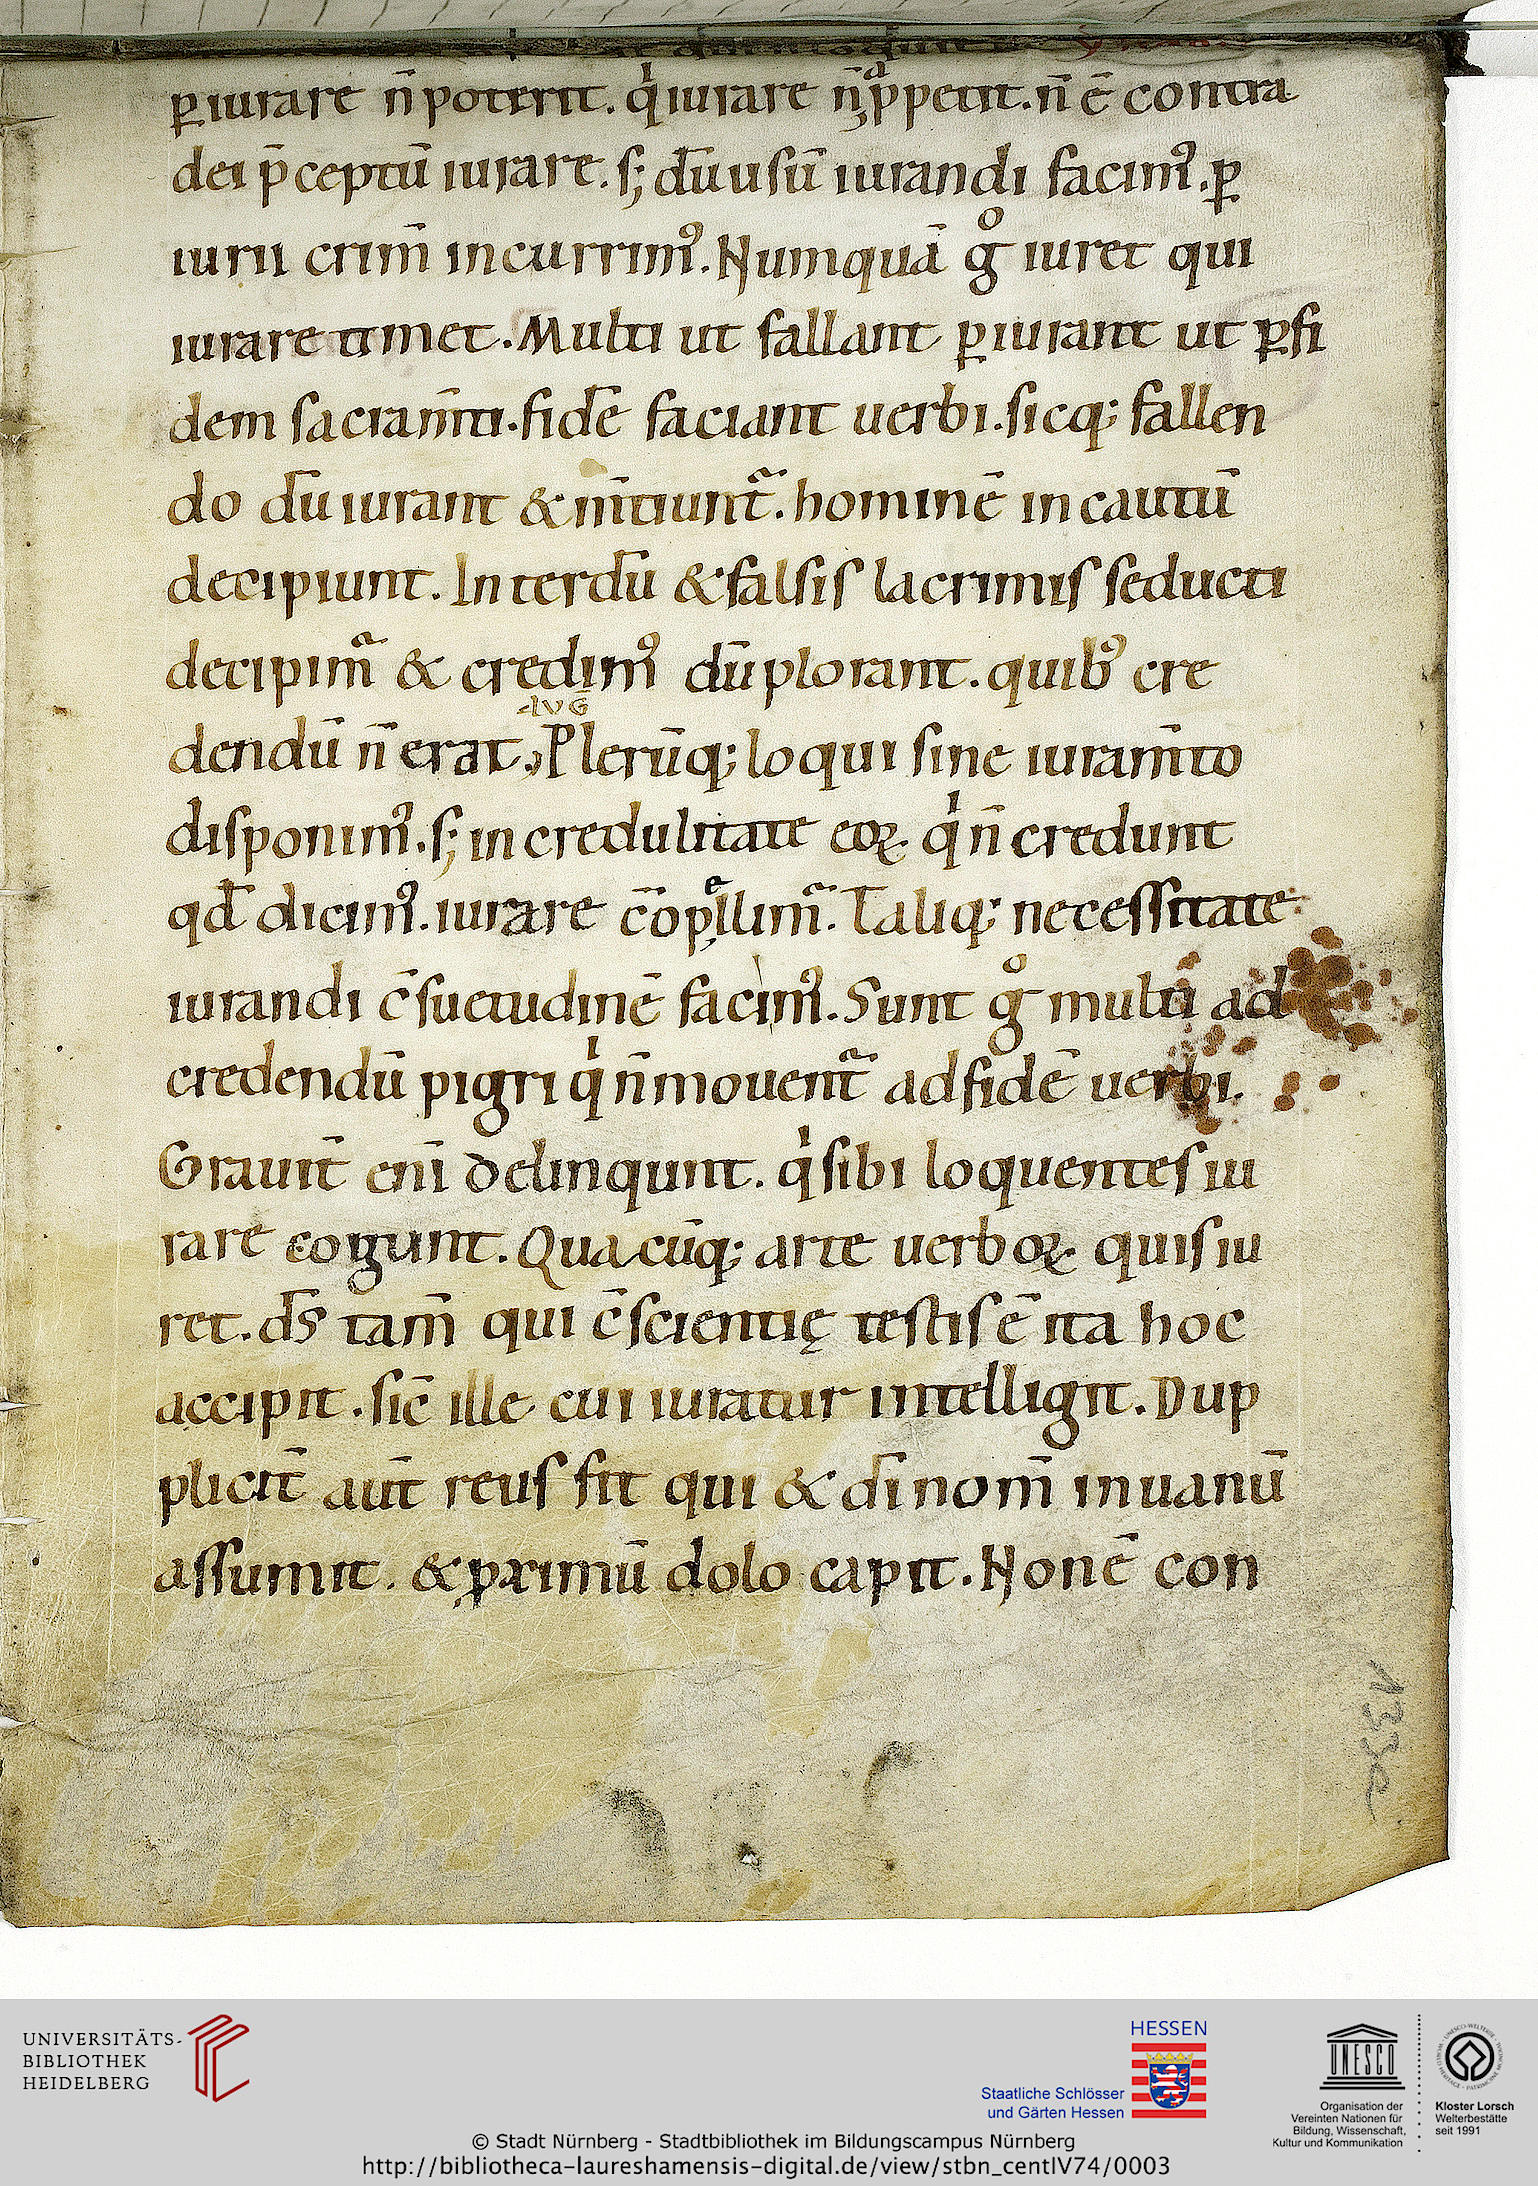 ꝑiurare n̄ poterit. qͥ iurare n̄ ꝓpetit. n̄ ē contra
dei p̄ceptū iurare. s; dū usū iurandi facimꝰ. ꝑ
iurii crim̄ incurrimꝰ. Numquā gͦ iuret qui
iurare timet. Multi ut fallant ꝑiurant ut ꝑ fi
dem sacram̄ti. fidē faciant uerbi. sicq; fallen
do dū iurant & m̄tiunt᷑. hominē incautū
decipiunt. Interdū & falsis lacrimis seducti
decipim᷑ & credimꝰ dū plorant. quibꝰ cre
AVḠ
dendū n̄ erat. Plerūq; loqui sine iuram̄to
disponimꝰ. s; incredulitate eoꝝ qͥ n̄ credunt
qđ dicimꝰ. iurare c̄opellim᷑. Taliq; necessitate
iurandi c̄suetudinē facimꝰ. Sunt gͦ multi ad
credendū pigri qͥ n̄ mouent᷑ ad fidē uerbi.
Grauit̄ eni̅ delinqunt. qͥ sibi loquentes iu
rare cogunt. Quacūq; arte uerboꝝ quis iu
ret. ds̄ tam̄ qui c̄scientię testis ē ita hoc
accipit. sic̄ ille cui iuratur intelligit. Dup
plicit̄ aut̄ reus fit qui & dī nom̄ in uanū
assumit. & ꝓximū dolo capit. Non ē con
UNIVERSITÄTS-
BIBLIOTHEK
HEIDELBERG
HESSEN
Staatliche Schlösser
und Gärten Hessen
UNESCO
Organisation der
Vereinten Nationen für
Bildung, Wissenschaft,
Kultur und Kommunikation
Kloster Lorsch
Welterbestätte
seit 1991
© Stadt Nürnberg - Stadtbibliothek im Bildungscampus Nürnberg
http://bibliotheca-laureshamensis-digital.de/view/stbn_centIV74/0003